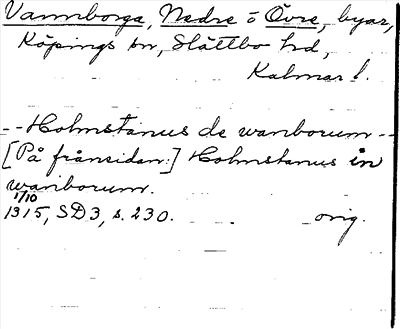 Vannborga, Nedre o Övre, byar,
Köpings sn, Slättbo hd,
Kalmar l.
--Holmstanus de wanborum--
[På frånsidan:] Holmstanus in
wanborum.
1/10
1315, SD3, s. 230. orig.